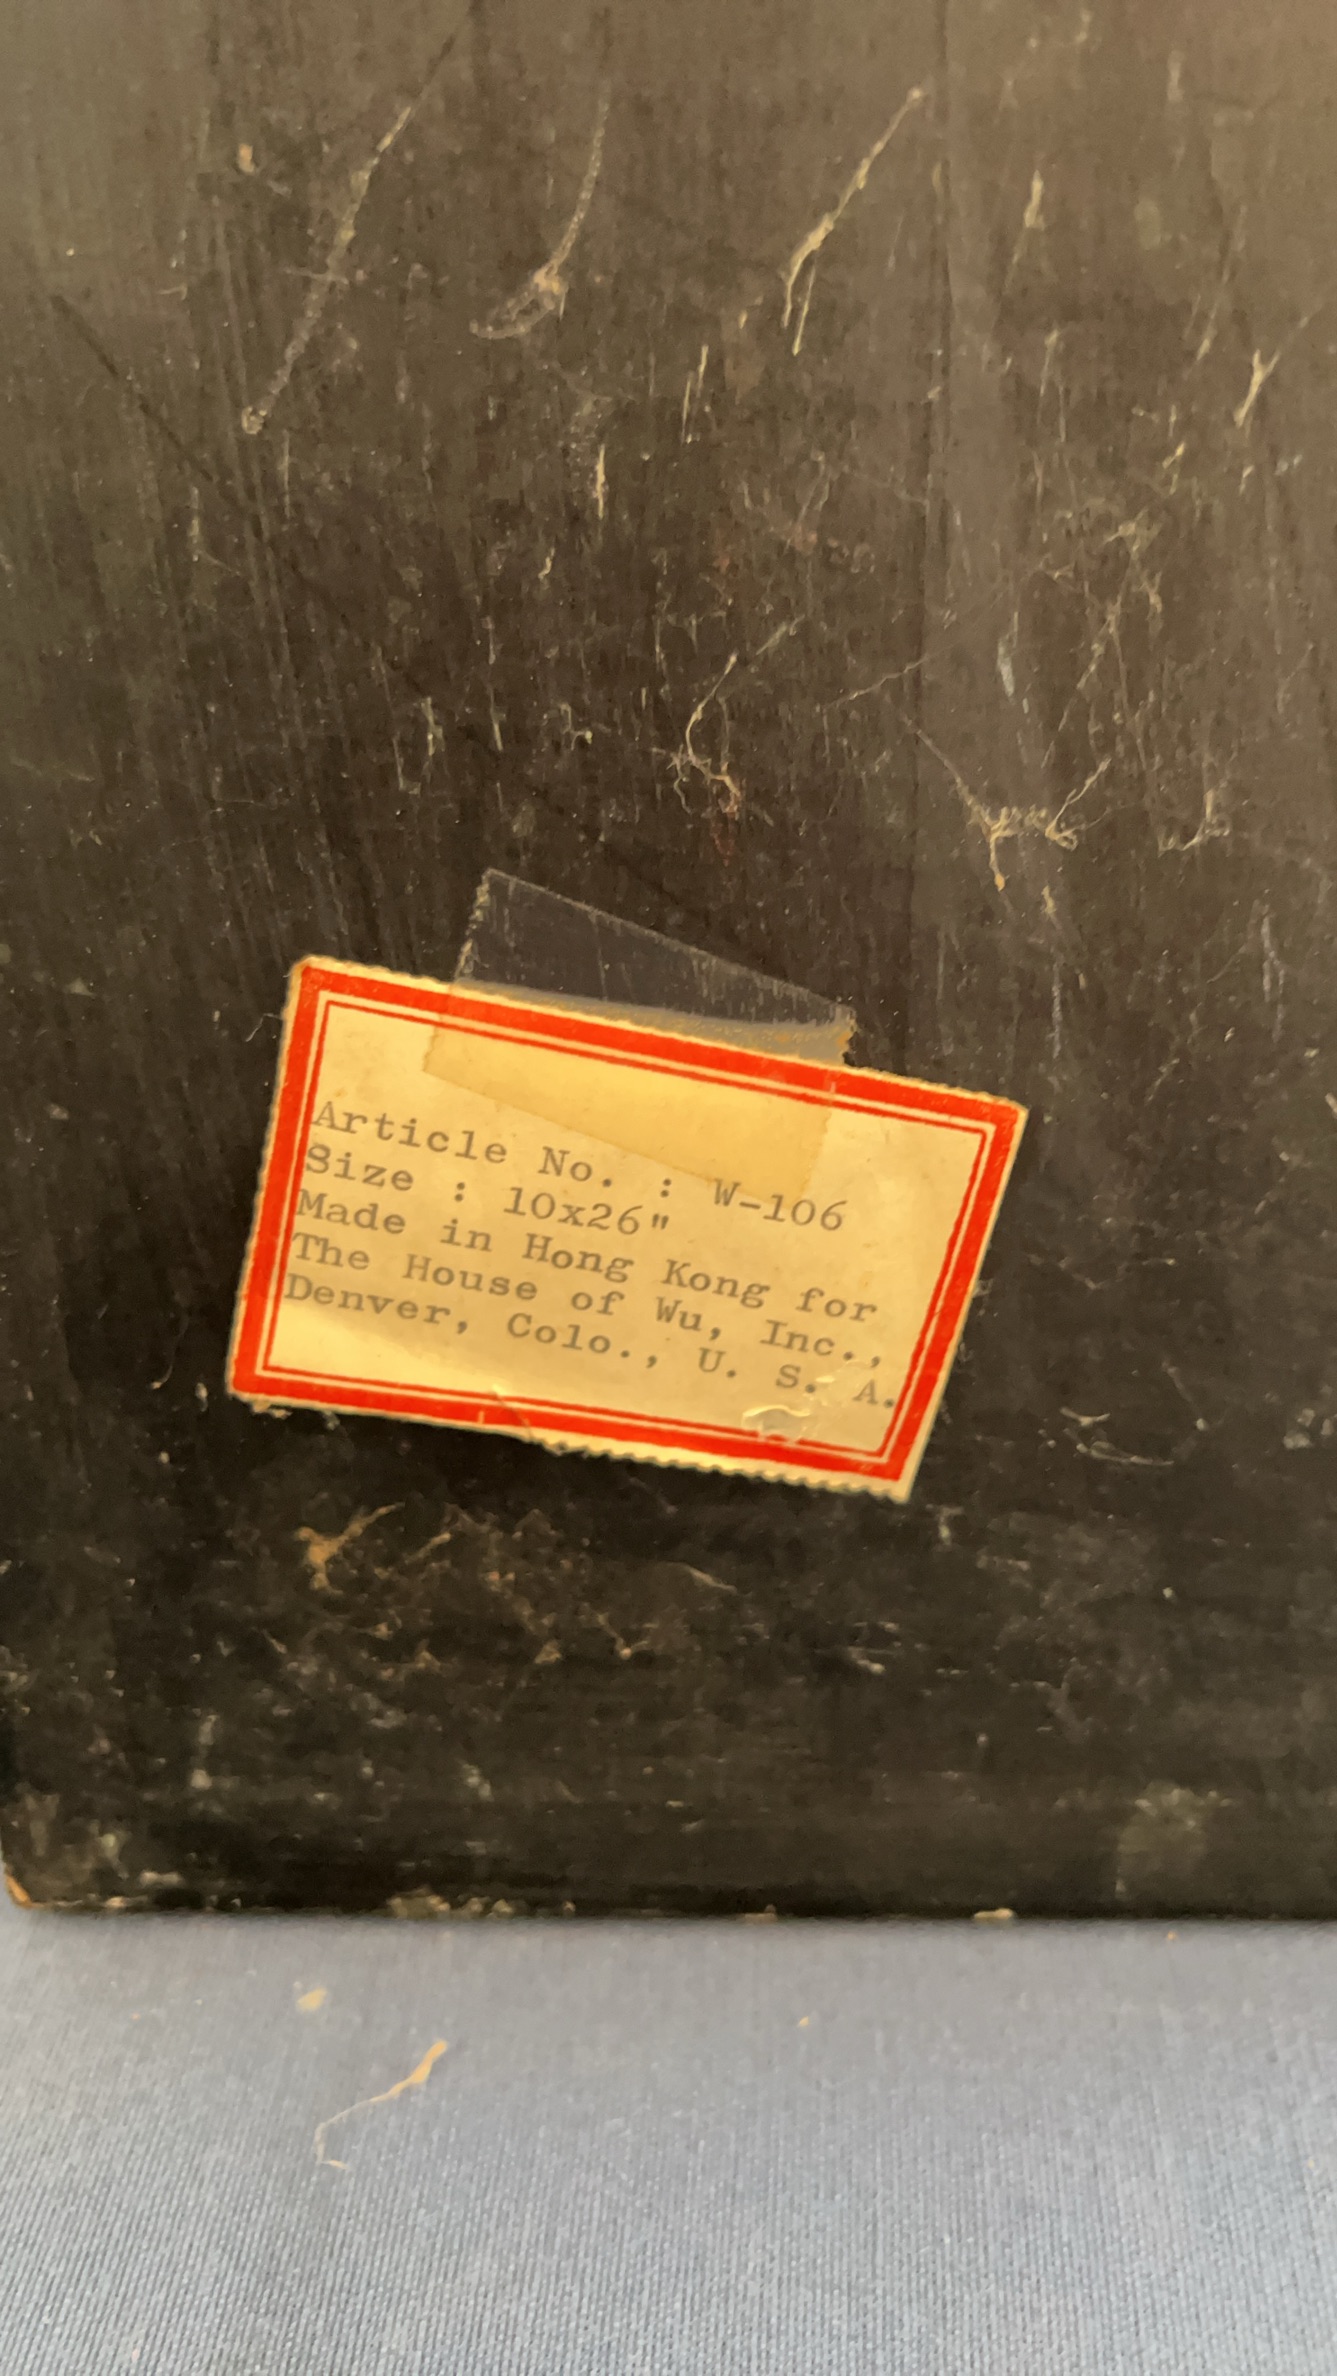 Article No. : W-106
Size : 10x26"
Made in Hong Kong for
The House of Wu, Inc.,
Denver, Colo., U. S. A.